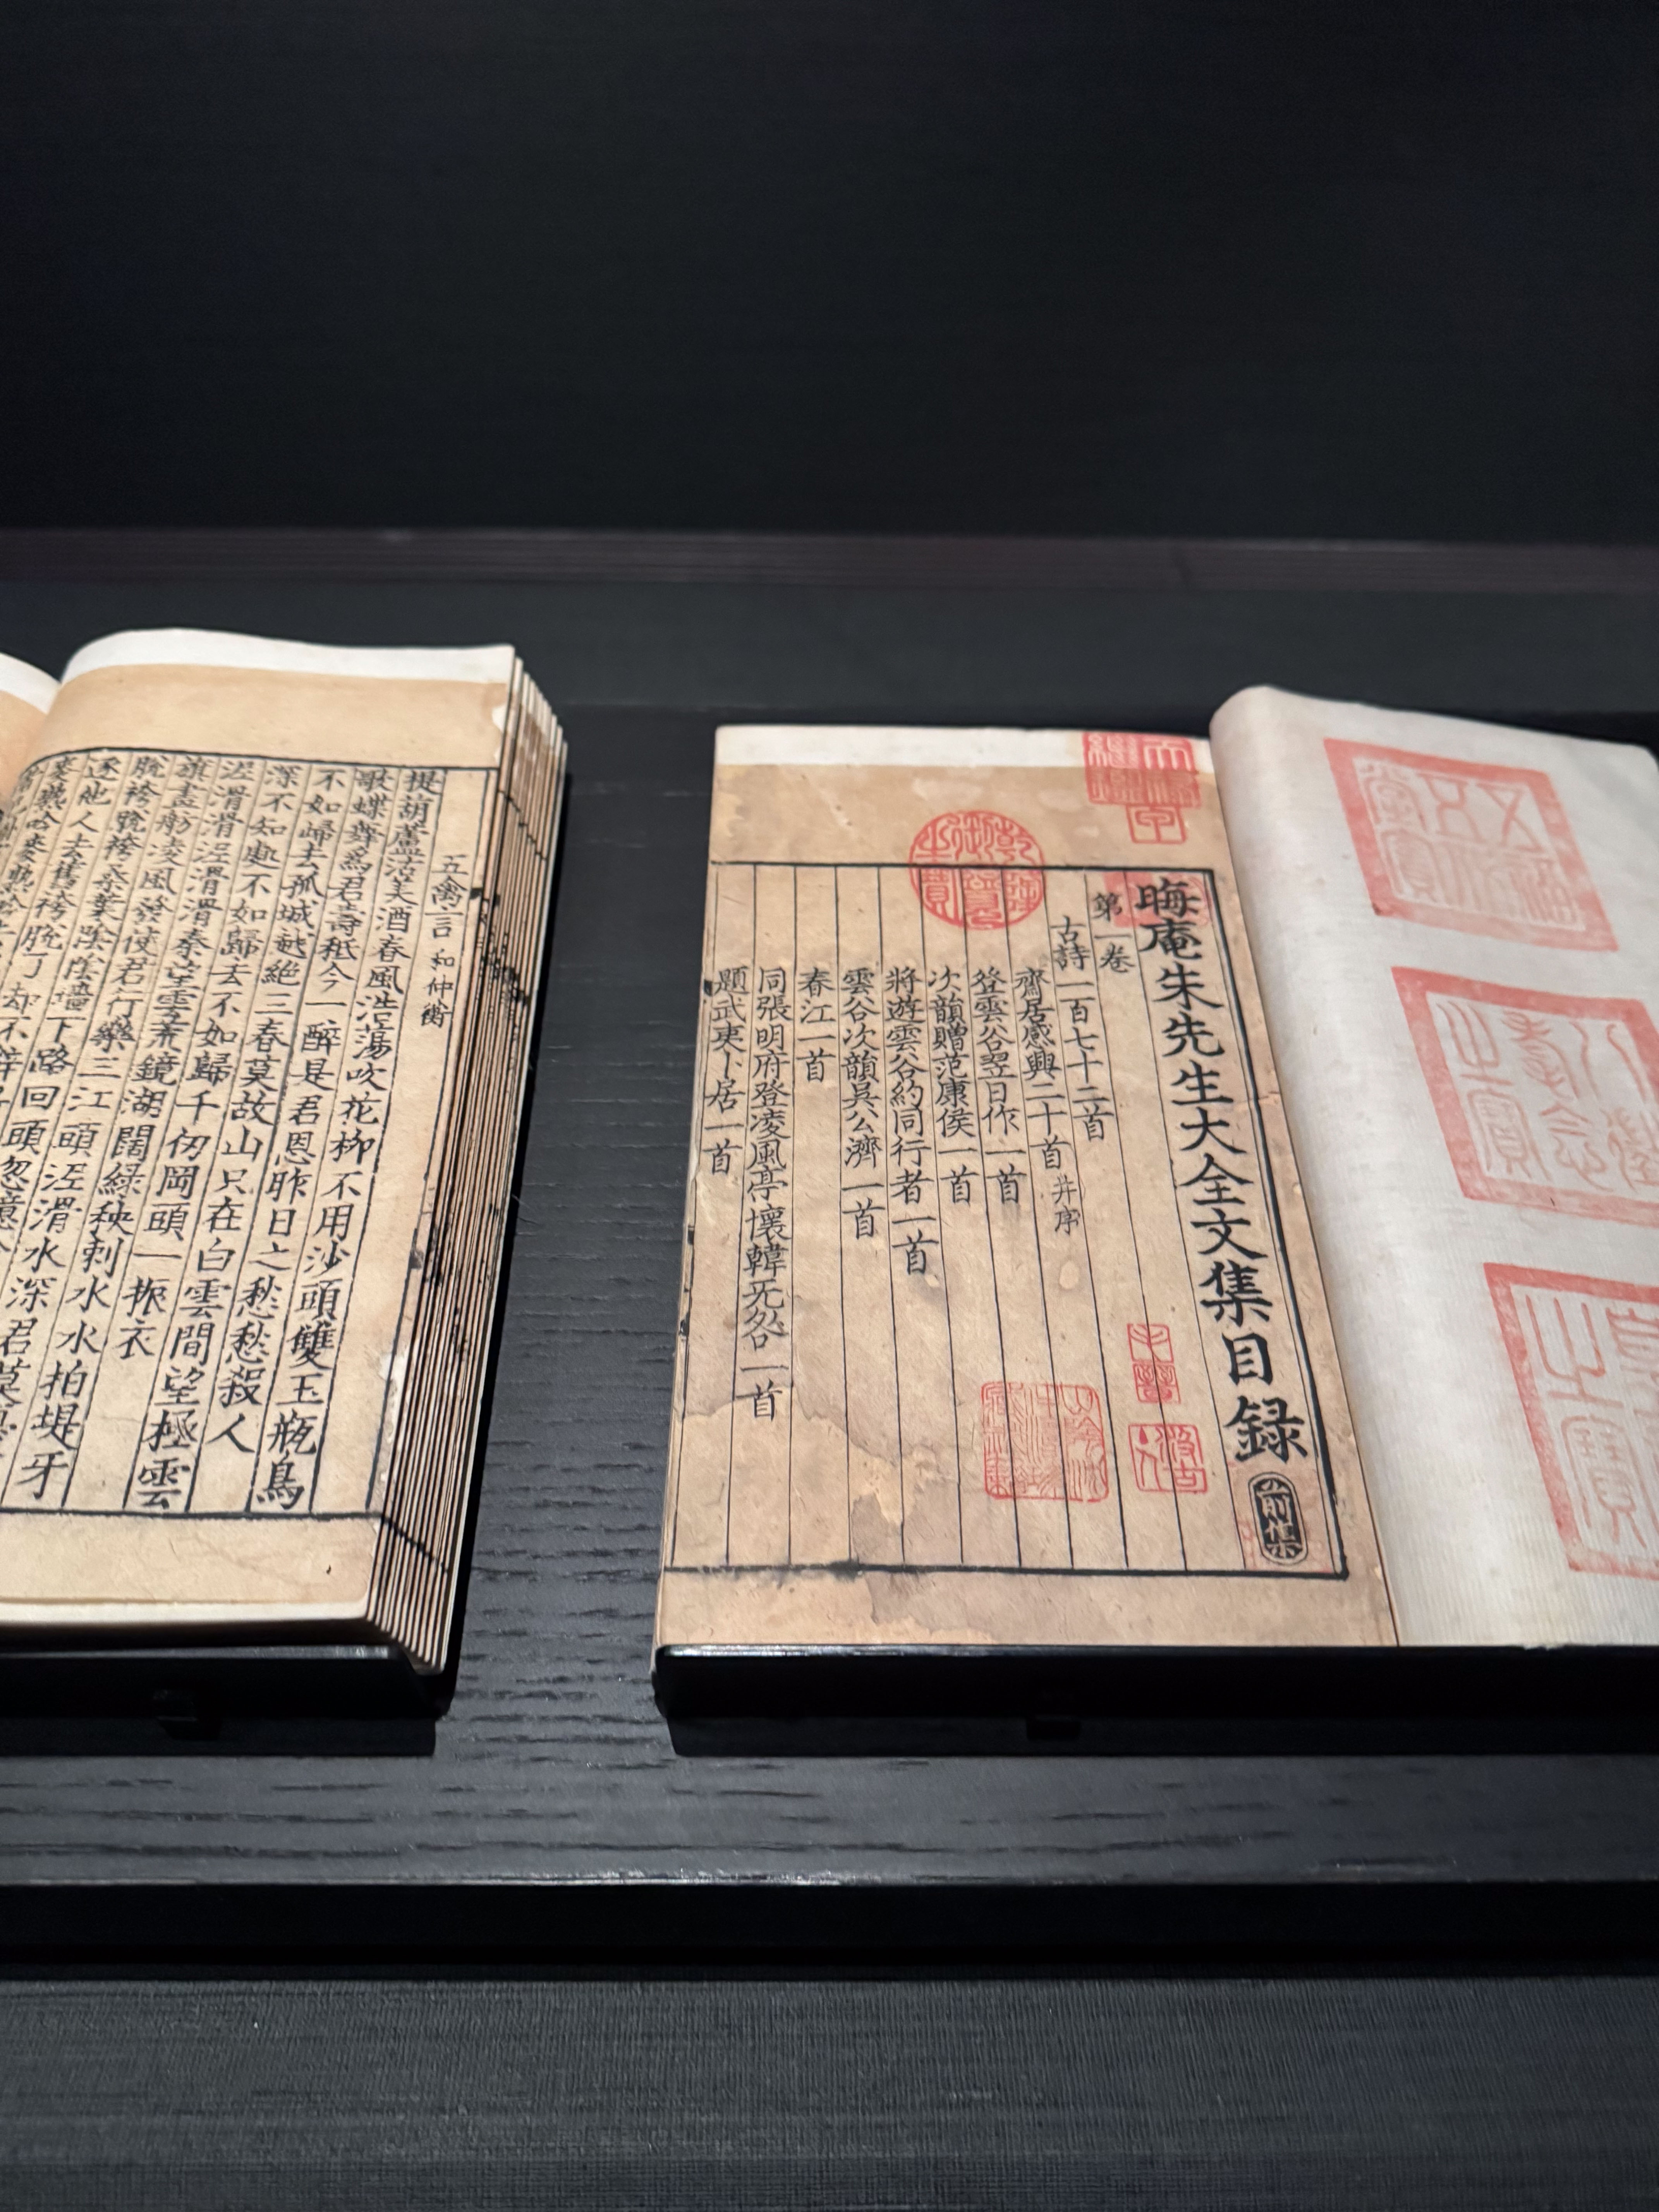 晦庵朱先生大全文集目録
前集
第一卷
古詩一百七十二首
齋居感興二十首 并序
登雲谷翌日作一首
次韻贈范康侯一首
將遊雲谷約同行者一首
雲谷次韻吳公濟一首
春江一首
同張明府登凌風亭懷韓无咎一首
題武夷卜居一首
五福
堂寶
八徵
耄念
之寶
之寶
乾隆
御覽
之寶
天祿
繼鑑
五禽言 和仲衡
提葫蘆沽美酒春風浩蕩吹花柳不用沙頭雙玉瓶鳥
歌蝶舞為君壽秖今一醉是君恩昨日之愁愁殺人
不如歸去孤城越絕三春莫故山只在白雲間望極雲
深不知處不如歸去不如歸千仞岡頭一振衣
泥滑滑泥滑滑秦望雲荒鏡湖闊緑秧刺水水拍堤牙
旗畫舫凌風發使君行樂三江頭泥滑水深君莫
脫袴脫袴桑葉陰陰墻下路回頭忽憶
逐他人去舊袴脫了却不
麥熟